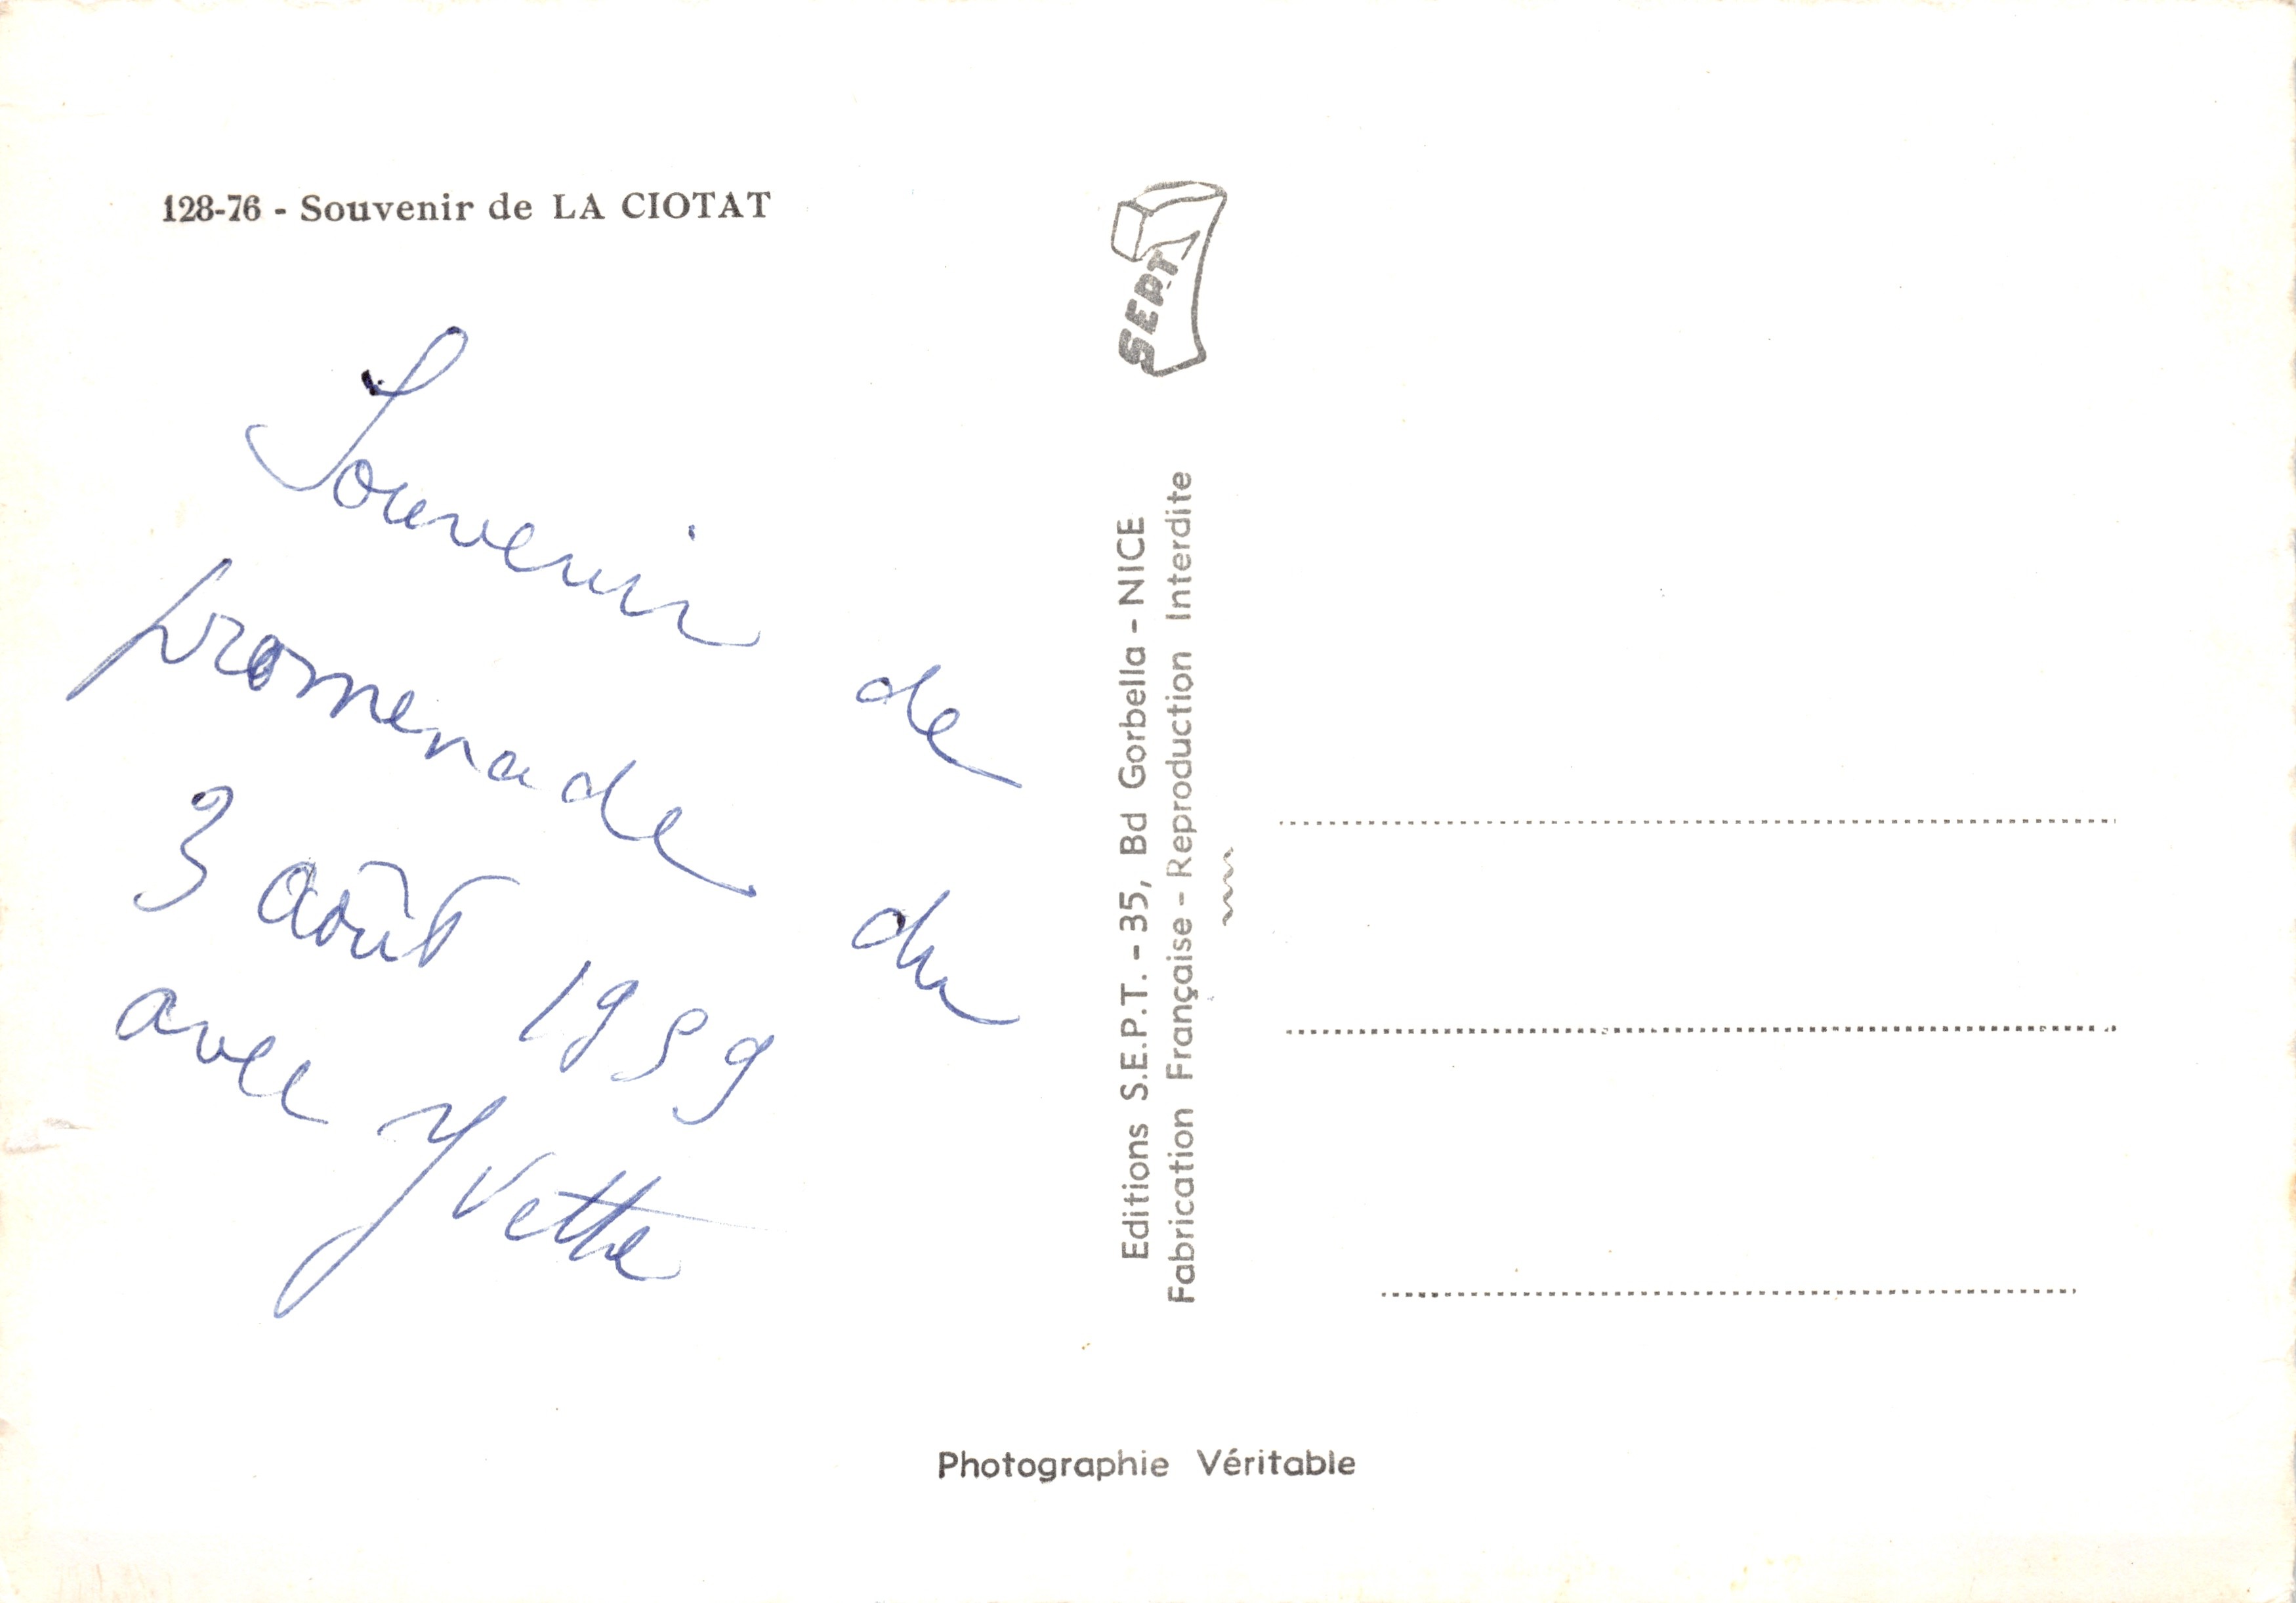 128-76 - Souvenir de LA CIOTAT
Souvenir de
promenade du
3 août 1959
avec Yvette
SEPT
Editions S.E.P.T. - 35, Bd Gorbella - NICE
Fabrication Française - Reproduction Interdite
Photographie Véritable